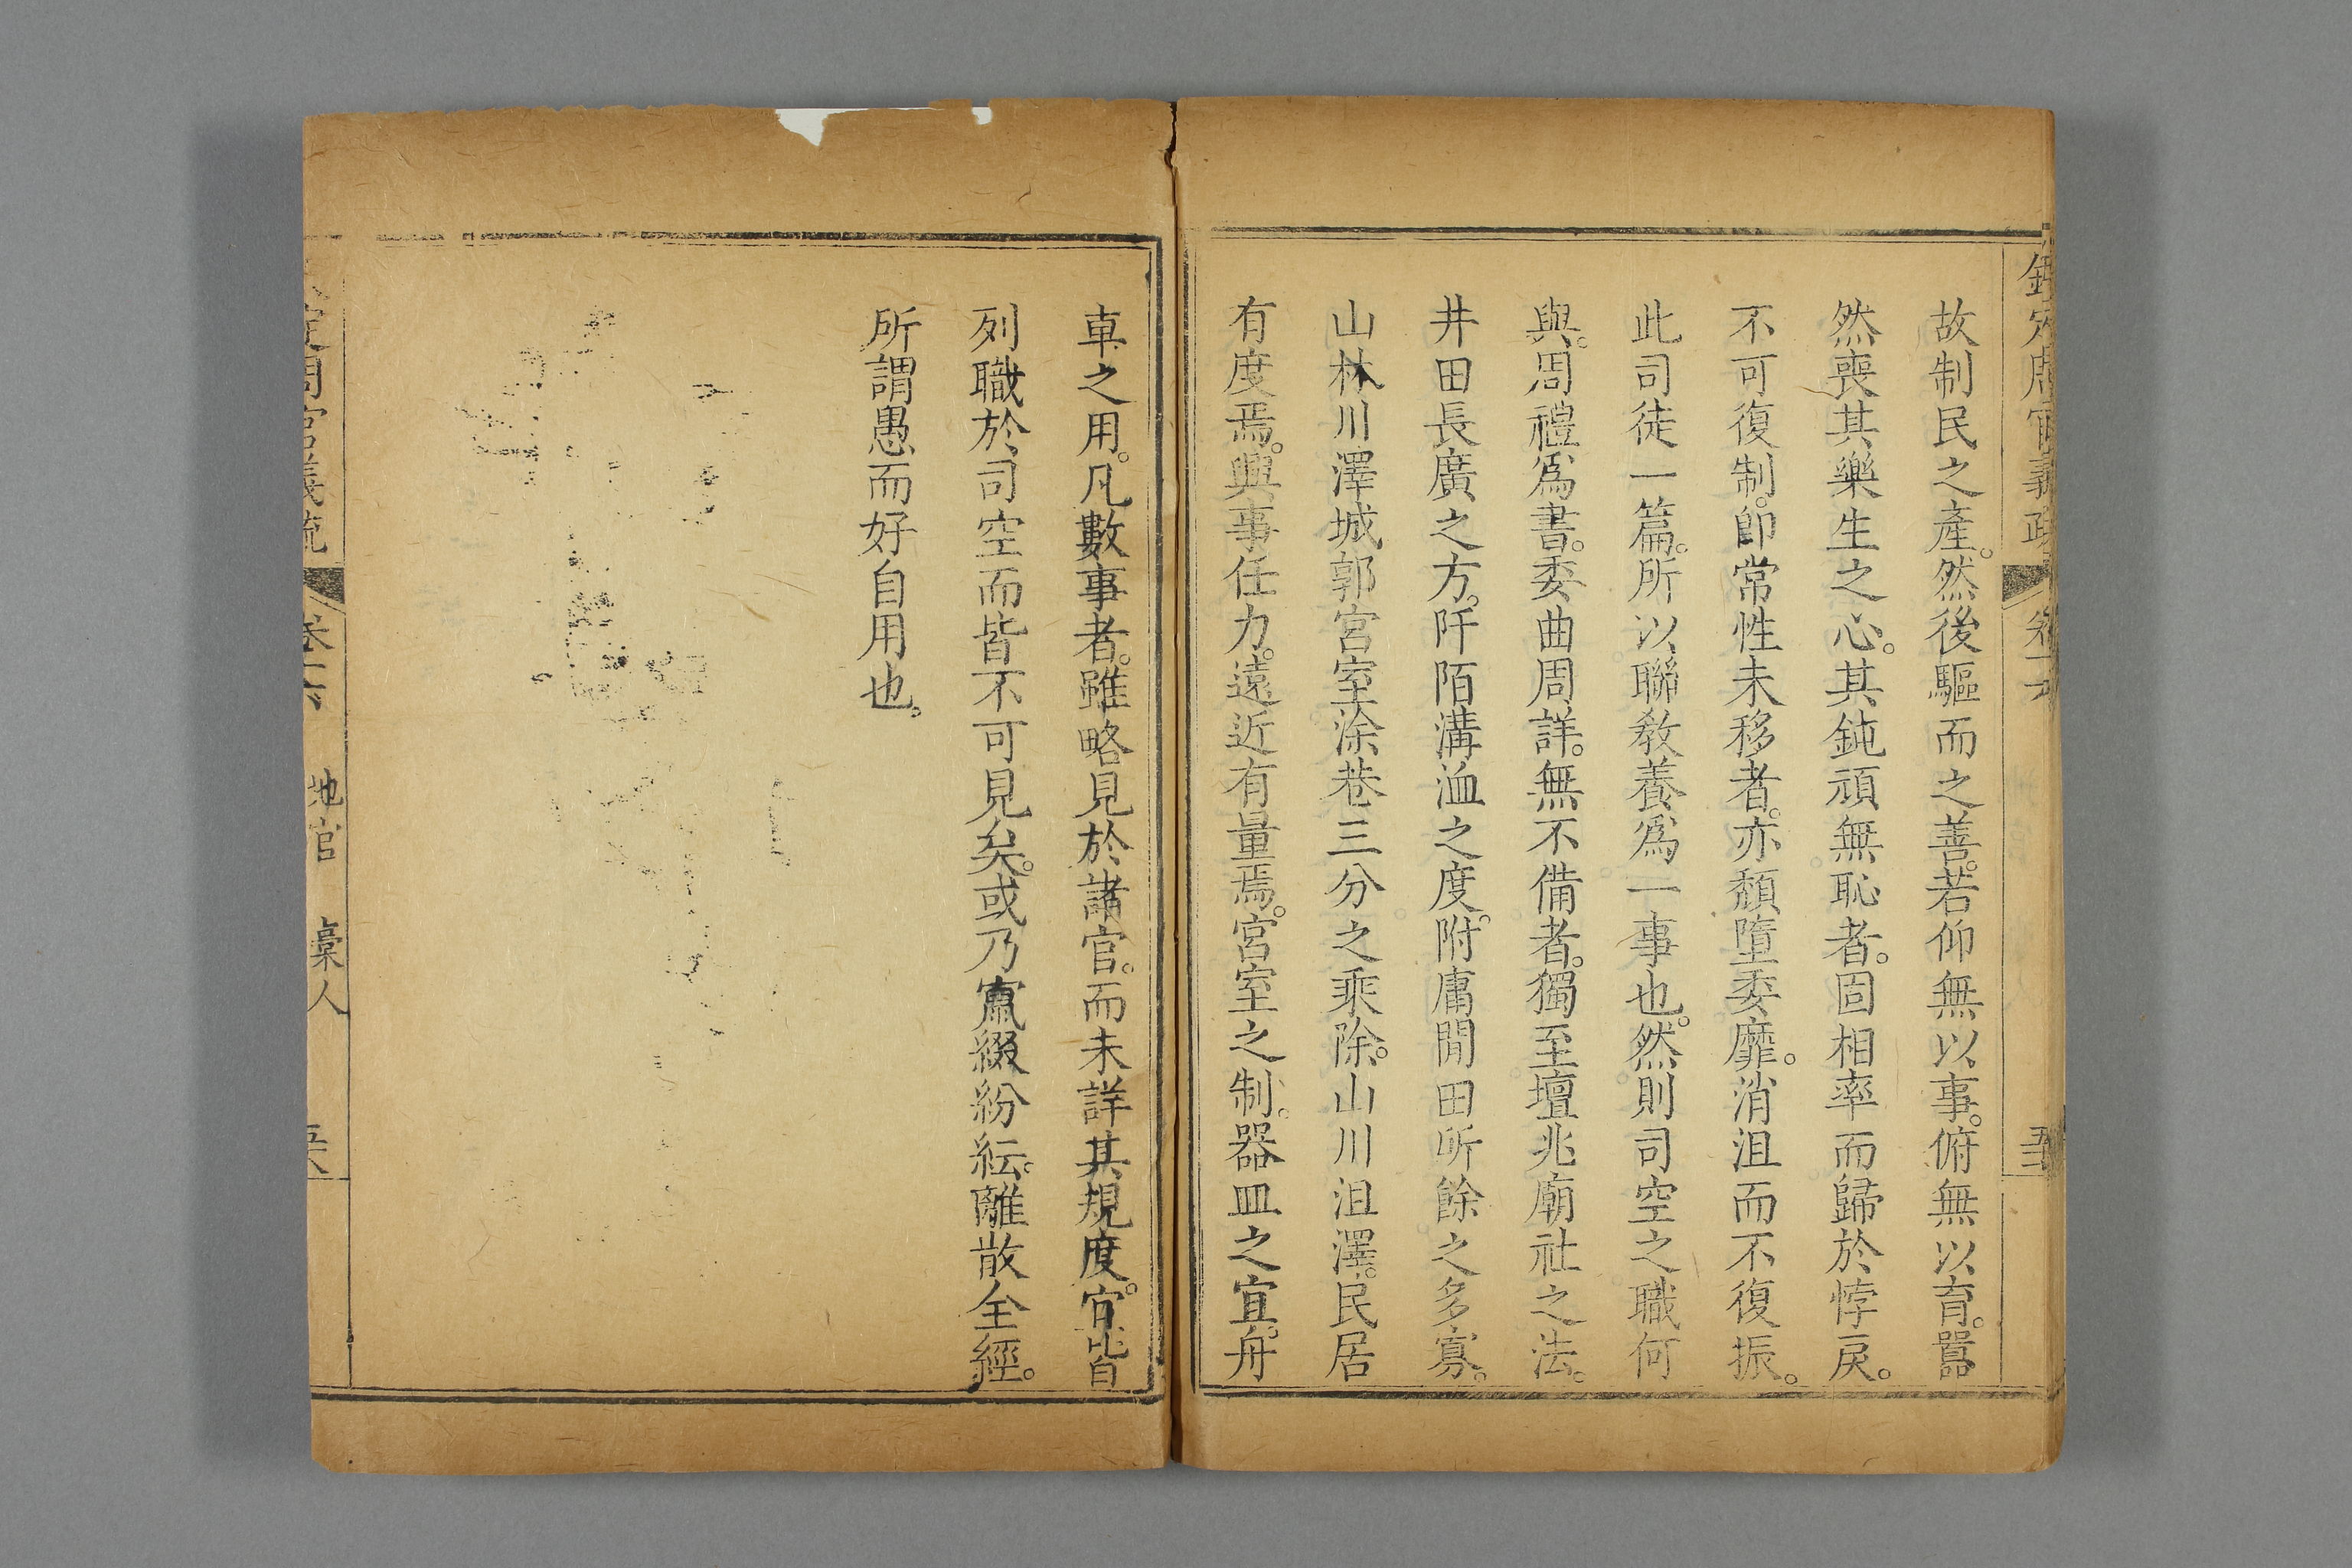 故制民之產。然後驅而之善。若仰無以事。俯無以育。嚚
然喪其樂生之心。其鈍頑無恥者。固相率而歸於悖戾。
不可復制。卽常性未移者。亦頹墮委靡。消沮而不復振。
此司徒一篇。所以聯敎養爲一事也。然則司空之職何
與。周禮爲書。委曲周詳。無不備者。獨至壇兆廟社之法。
井田長廣之方。阡陌溝洫之度。附庸閒田所餘之多寡。
山林川澤城郭宮室涂巷三分之乘除。山川沮澤。民居
有度焉。興事任力。遠近有量焉。宮室之制。器皿之宜。舟
車之用。凡數事者。雖略見於諸官。而未詳其規度。官皆
列職於司空而皆不可見矣。或乃竄綴紛紜。離散全經。
所謂愚而好自用也。
定周官義疏 卷十六 地官 槀人